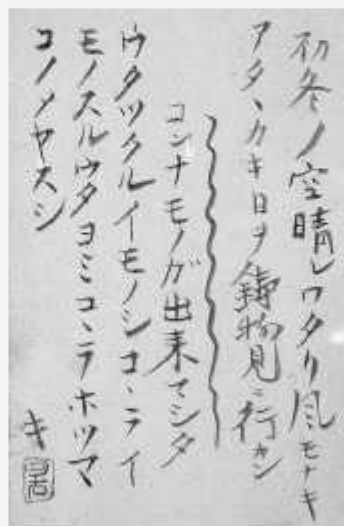 初冬ノ空晴レワタリ風モナキ
アタヽカキ日ヲ鋳物見ニ行カン
コンナモノガ出来マシタ
ウタツクルイモノシコヽラノイ
モノスルウタヨミコヽラホツマ
コノメヤスシ
キ